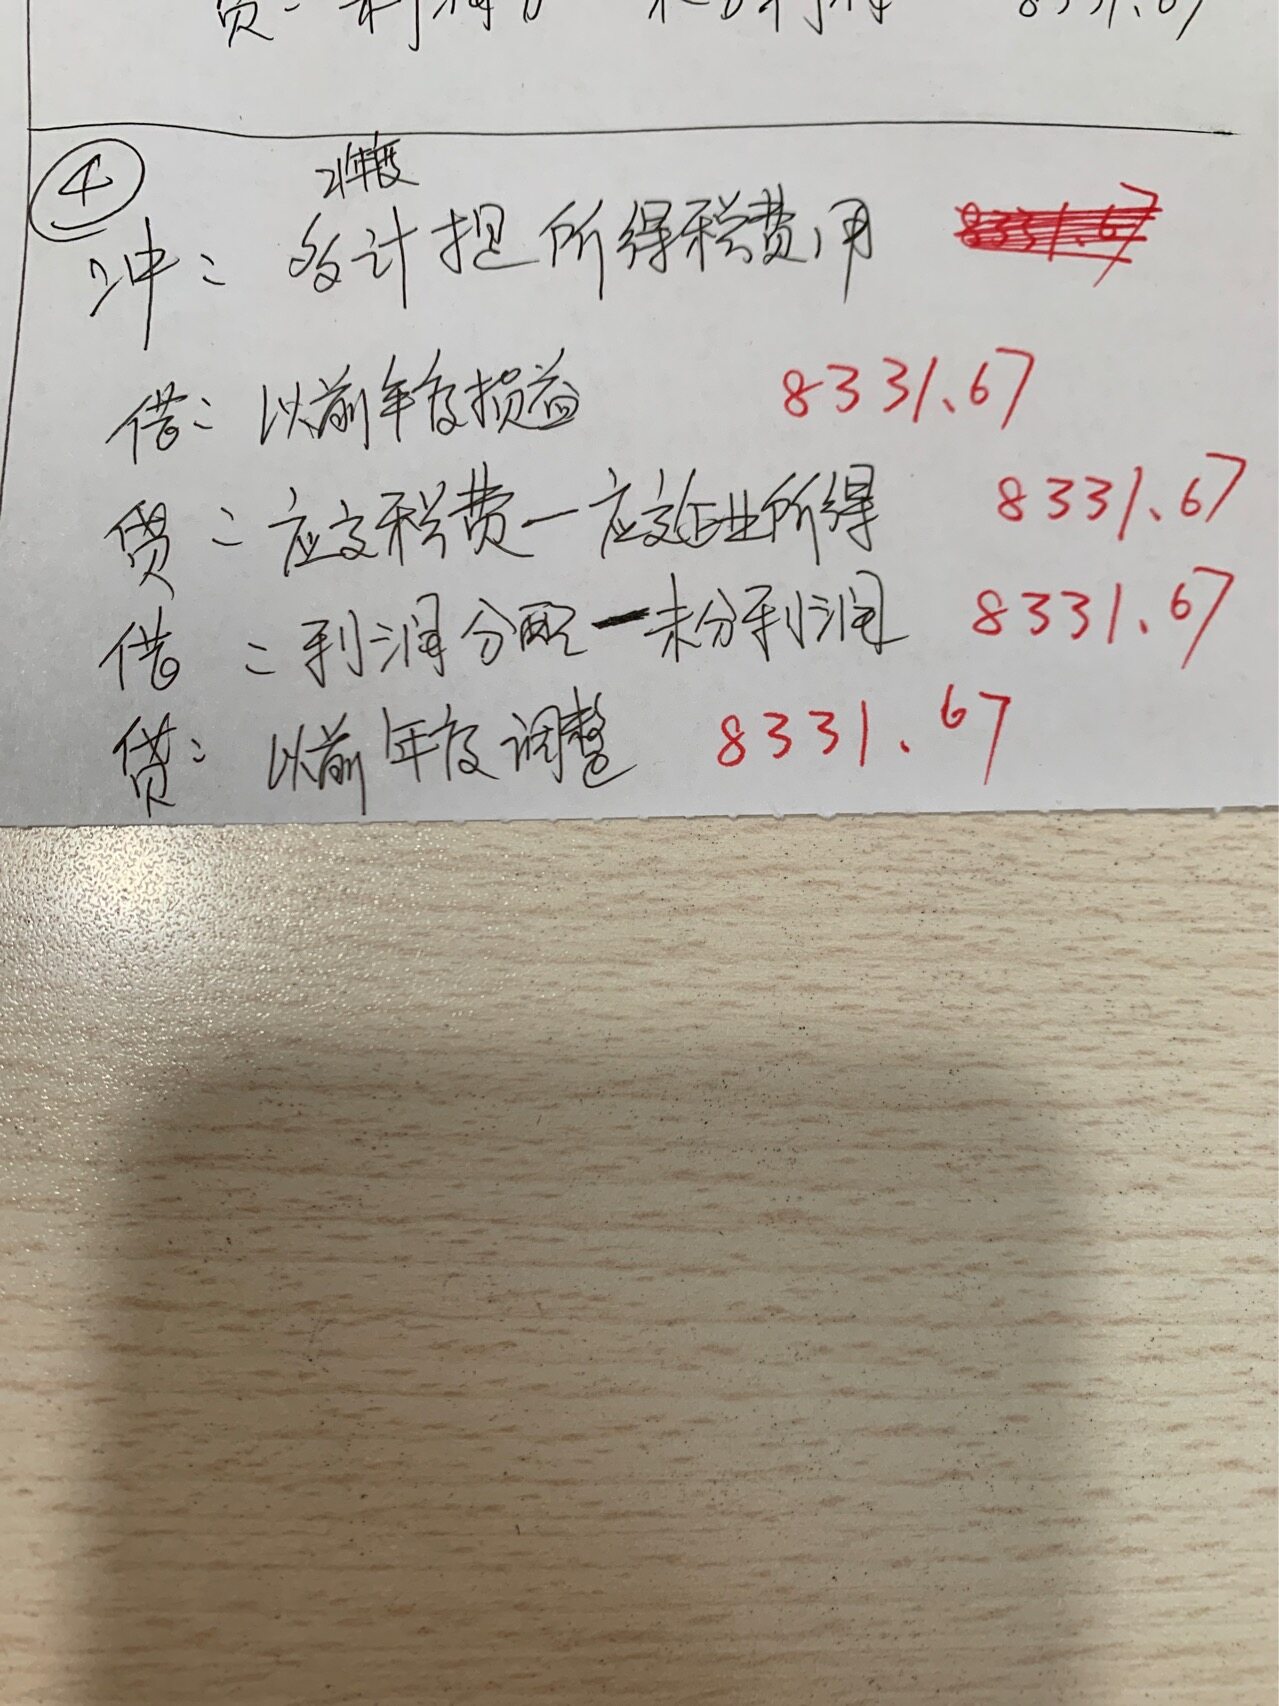 贷：利润分 未分利润 8331.67
④
21年度
冲：多计提所得税费用 8331.67
借：以前年度损益 8331.67
贷：应交税费一应交企业所得 8331.67
借：利润分配一未分利润 8331.67
贷：以前年度调整 8331.67